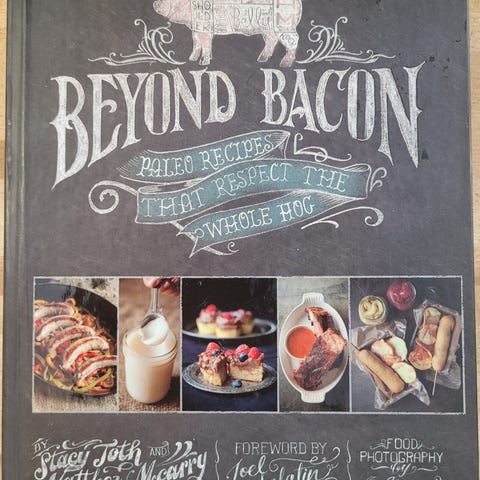 SHO
LDE
Belly
BEYOND BACON
PALEO RECIPES
THAT RESPECT THE
WHOLE HOG
BY
Stacy Toth AND
Matthew McCarry
FOREWORD BY
Joel Salatin
FOOD
PHOTOGRAPHY
by